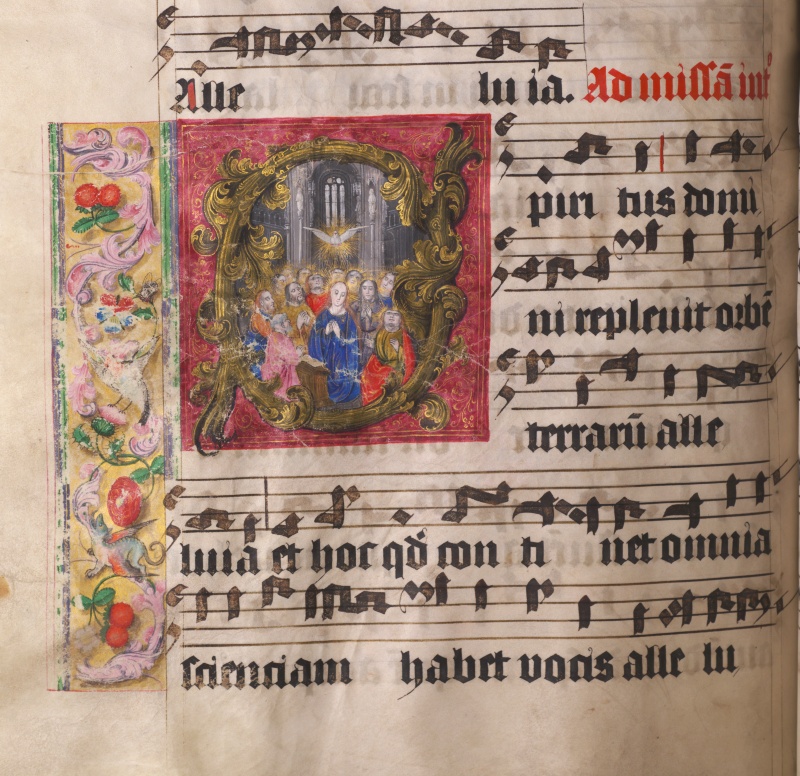 Alle lu ia. Ad missā int°
Spiri tus domi
ni repleuit orbē
terrarū alle
luia et hoc qd̄ con ti net omnia
scienciam habet vocis alle lu